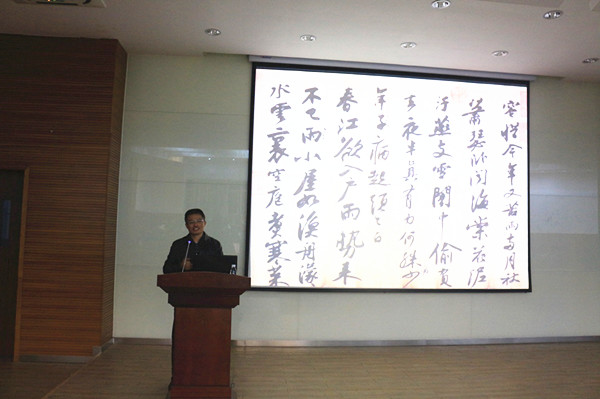 容惜今年又苦雨兩月秋
蕭瑟卧聞海棠花泥
汙燕支雪闇中偷負
去夜半真有力何殊少
年子病起須已白
春江欲入户雨勢來
不已雨小屋如漁舟濛
水雲裏空庖煑寒菜